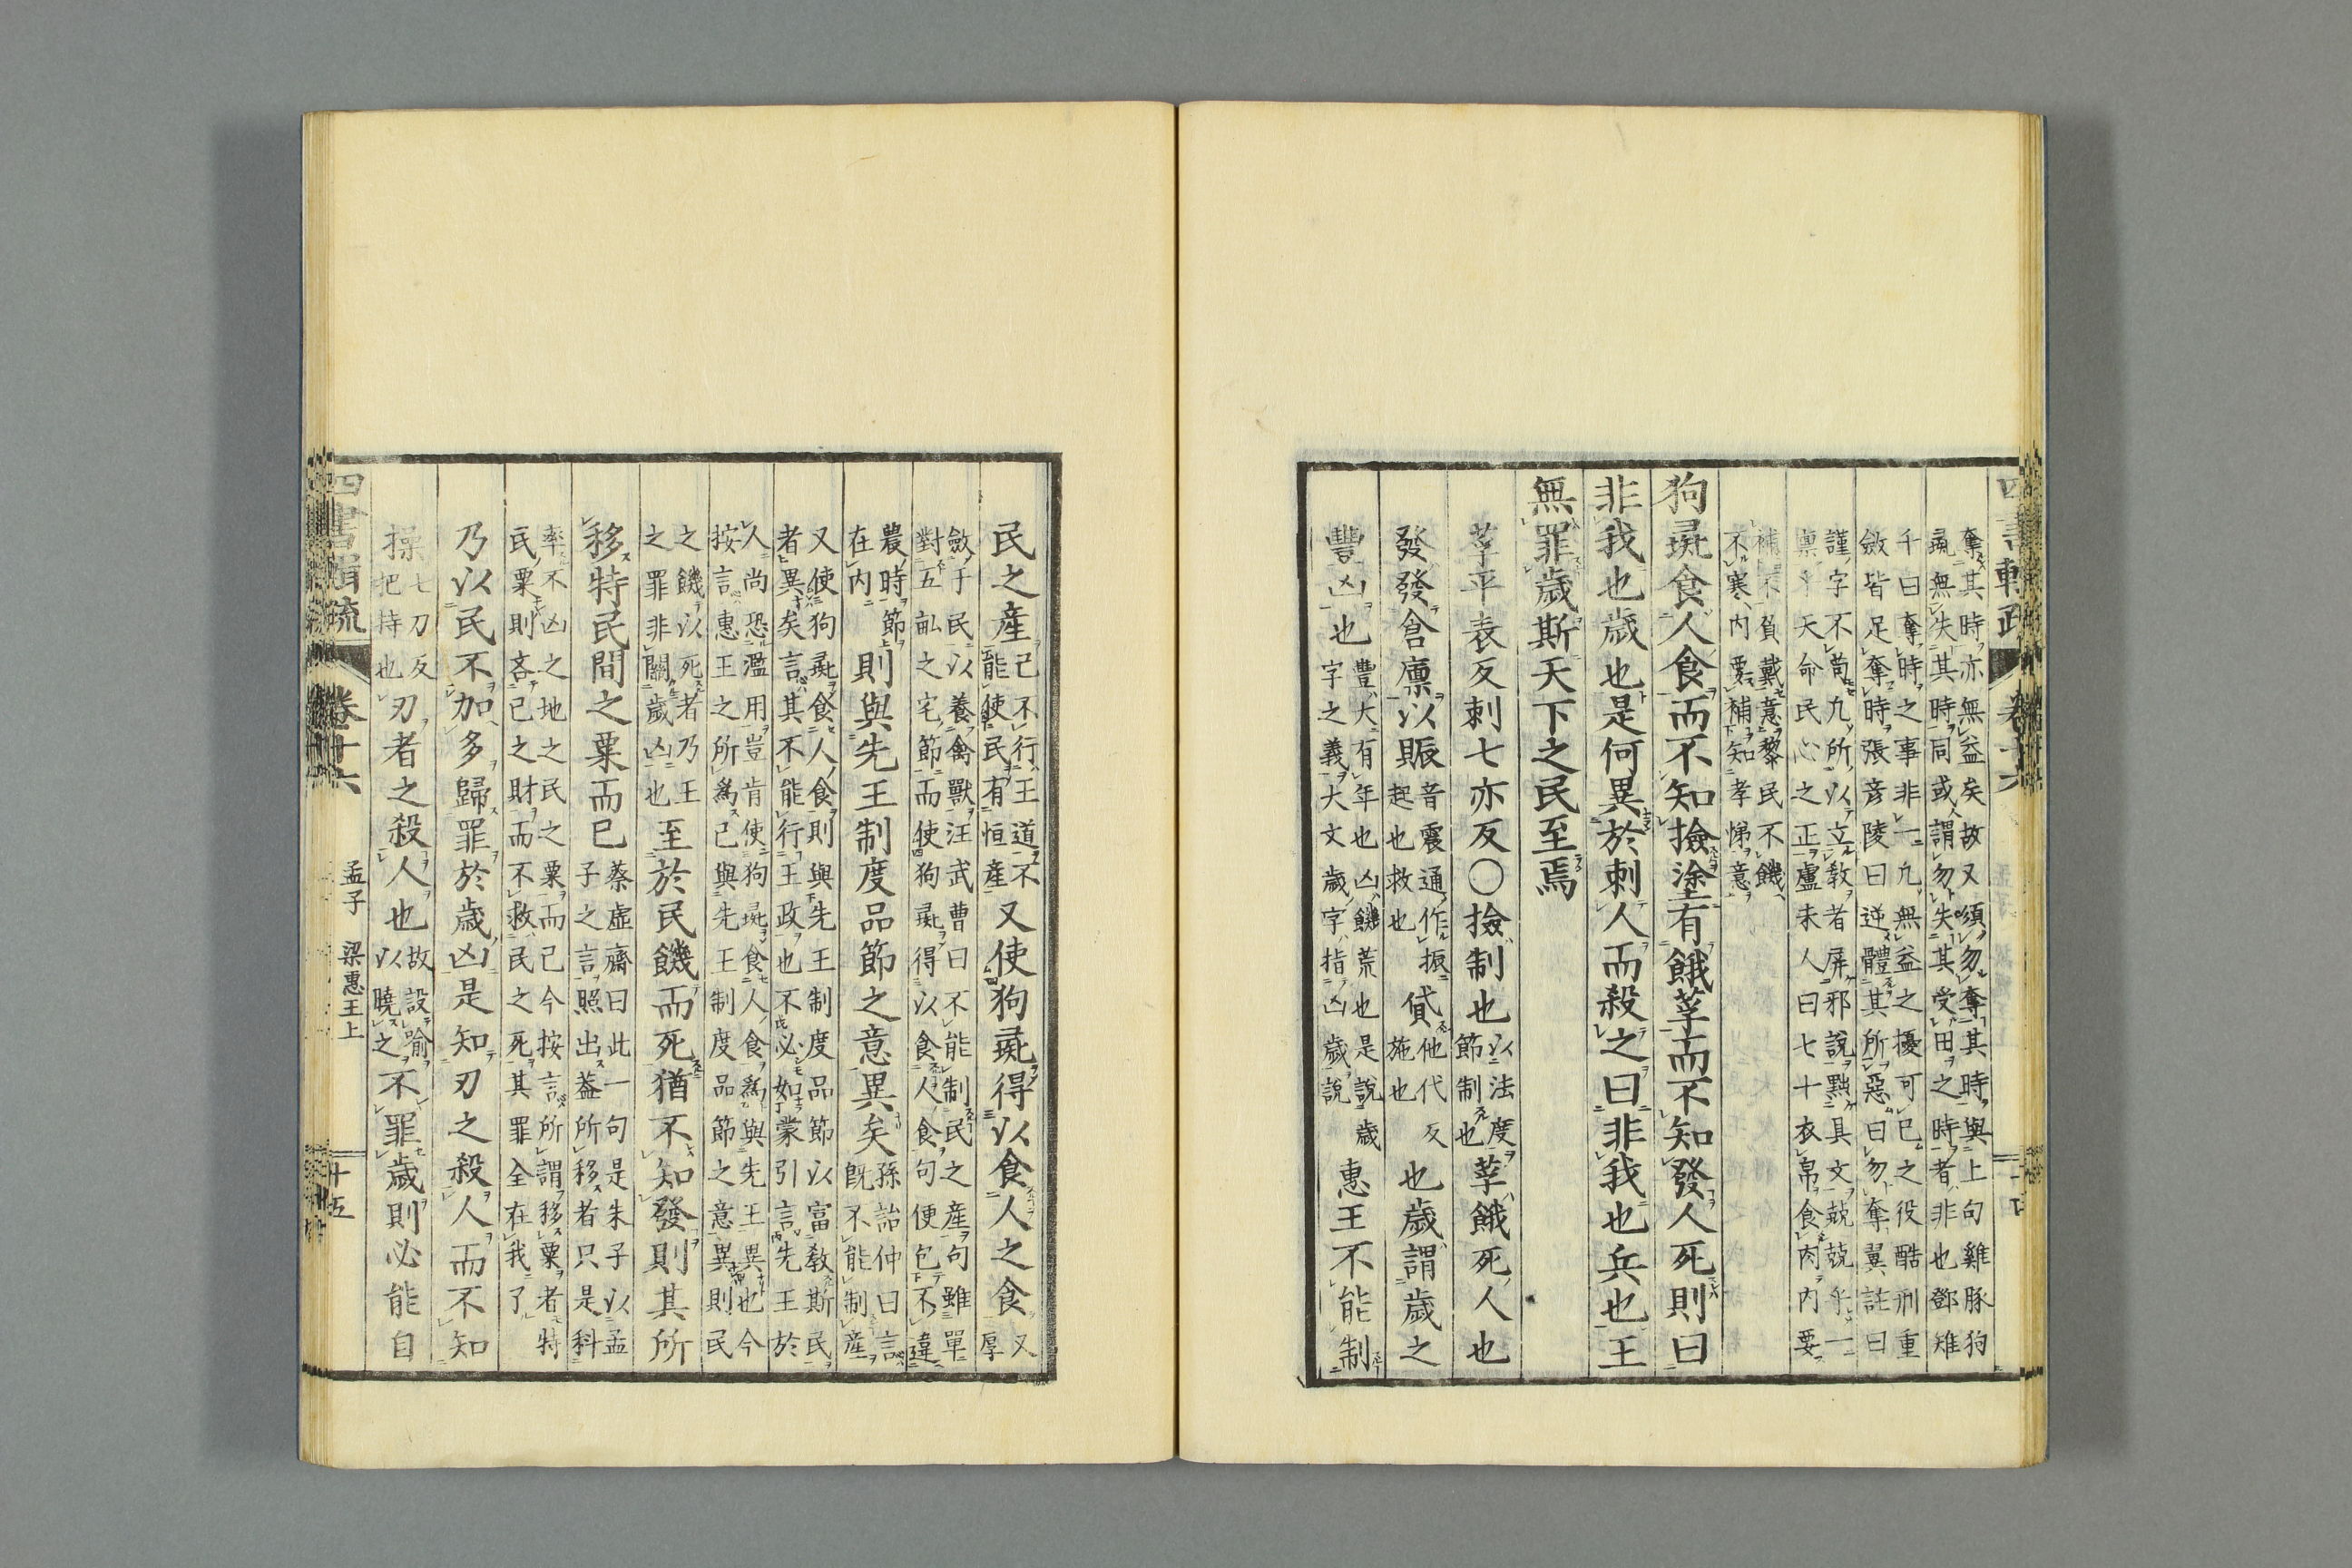 奪其時亦無益矣故又須勿奪其時與上句雞豚狗
彘無失其時同或謂勿失其受田之時者非也鄧雉
千曰奪時之事非一凡無益之擾可已之役酷刑重
斂皆足奪時張彦陵曰逆體其所惡曰勿奪翼註曰
謹字不苟凡所以立教者屏邪說黜具文兢兢乎一
禀乎天命民心之正盧未人曰七十衣帛食肉內要
補不負戴意黎民不饑
不寒內要補知孝悌意
狗彘食人食而不知撿塗有餓莩而不知發人死則曰
非我也歲也是何異於刺人而殺之曰非我也兵也王
無罪歲斯天下之民至焉
莩平表反刺七亦反〇撿制也以法度
節制也莩餓死人也
發發倉廪以賑音震通作振
起也救也貸他代反
施也也歲謂歲之
豐凶也豊大有年也凶饑荒也是說歲
字之義大文歲字指凶歲說惠王不能制
民之產己不行王道不
能使民有恒產又使狗彘得以食人之食又
厚
斂于民以養禽獸汪武曹曰不能制民之產句雖單
對五畝之宅節而使狗彘得以食人食句便包不違
農時節
在內則與先王制度品節之意異矣孫詒仲曰言
既不能制產
又使狗彘食人食則與先王制度品節以富教斯民
者異矣言其不能行王政也不必如蒙引言先王於
人尚恐濫用豈肯使狗彘食人食爲與先王異也今
按言惠王之所爲已與先王制度品節之意異則民
之饑以死者乃王
之罪非關歲凶也至於民饑而死猶不知發則其所
移特民間之粟而已蔡虛齋曰此一句是朱子以孟
子之言照出葢所移者只是科
率不凶之地之民之粟而已今按言所謂移粟者特
民粟則吝己之財而不救民之死其罪全在我了
乃以民不加多歸罪於歲凶是知刃之殺人而不知
操七刀反
把持也刃者之殺人也故設喻
以曉之不罪歲則必能自
四書頼疏 卷十六 孟子 梁惠王上 十五